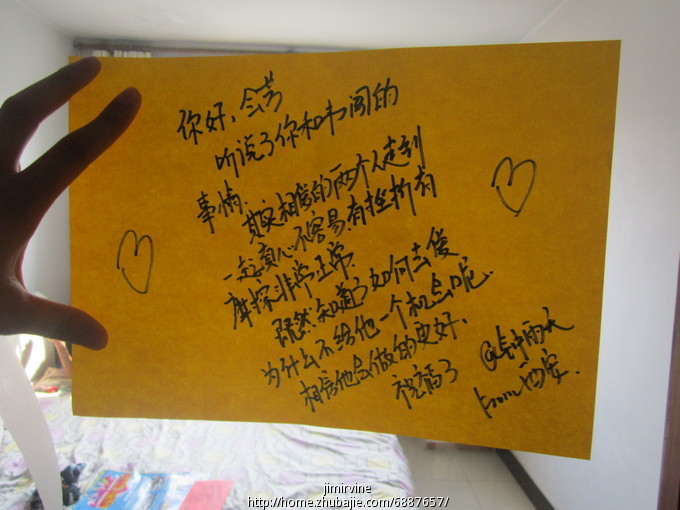 你好,会芳
听说了你和韦闯的
事情.
其实相信的两个人走到
一起真心不容易,有挫折有
摩擦非常正常.
既然知道了如何去爱
为什么不给他一个机会呢.
相信他会做的更好.
祝福了
@雨天
from 西安.
jimirvine
http://home.zhubajie.com/6887657/